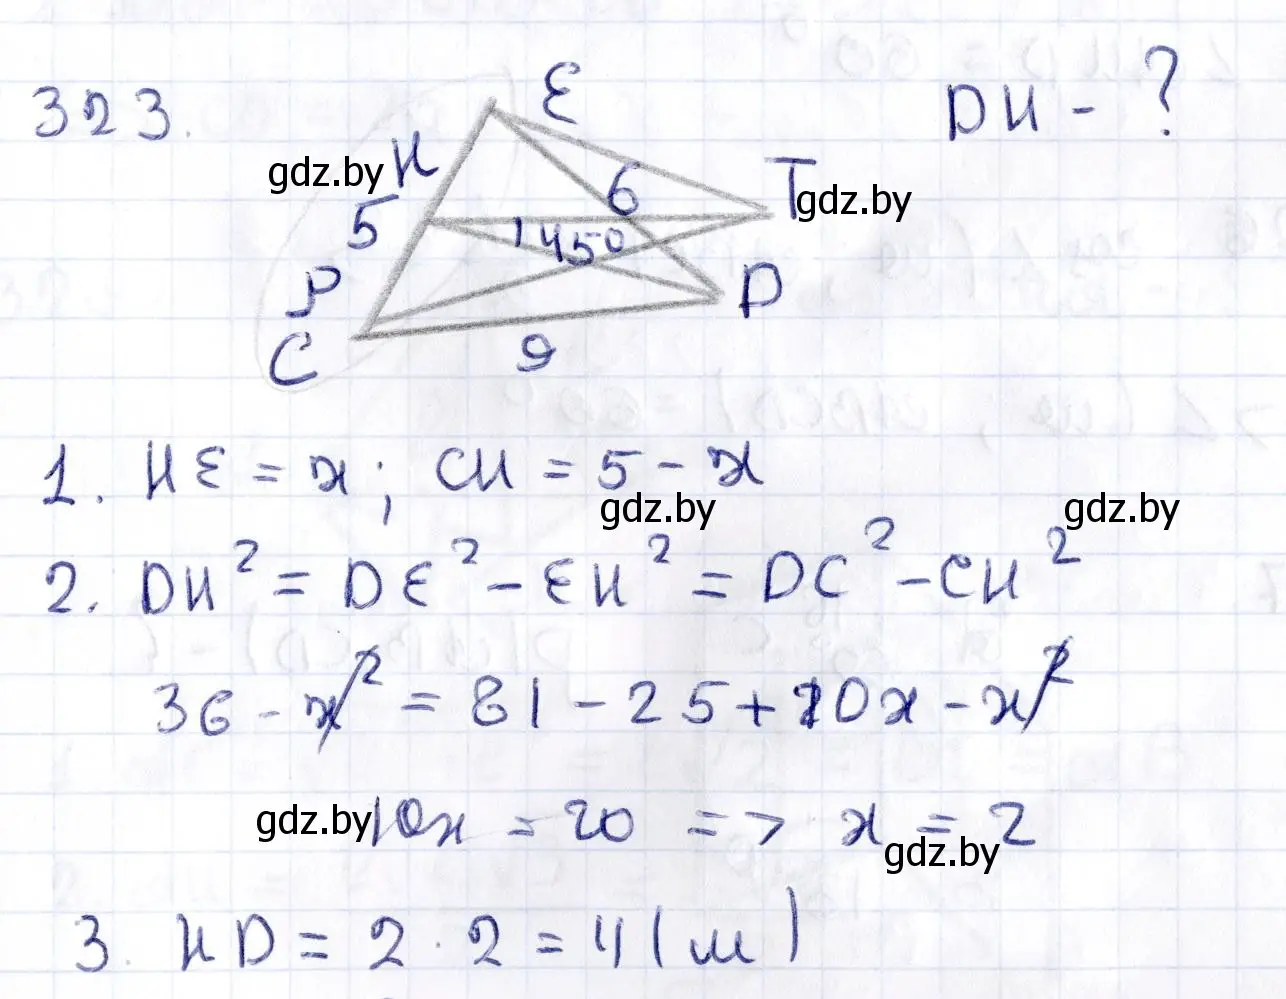 323.
DH - ?
E
H
gdz.by
6
T
gdz.by
5
145°
P
D
C
9
1. HE = x; CH = 5 - x
gdz.by
gdz.by
2. DH² = DE² - EH² = DC² - CH²
36 - x² = 81 - 25 + 10x - x²
gdz.by
10x = 20 => x = 2
gdz.by
3. HD = 2 · 2 = 4 (м)